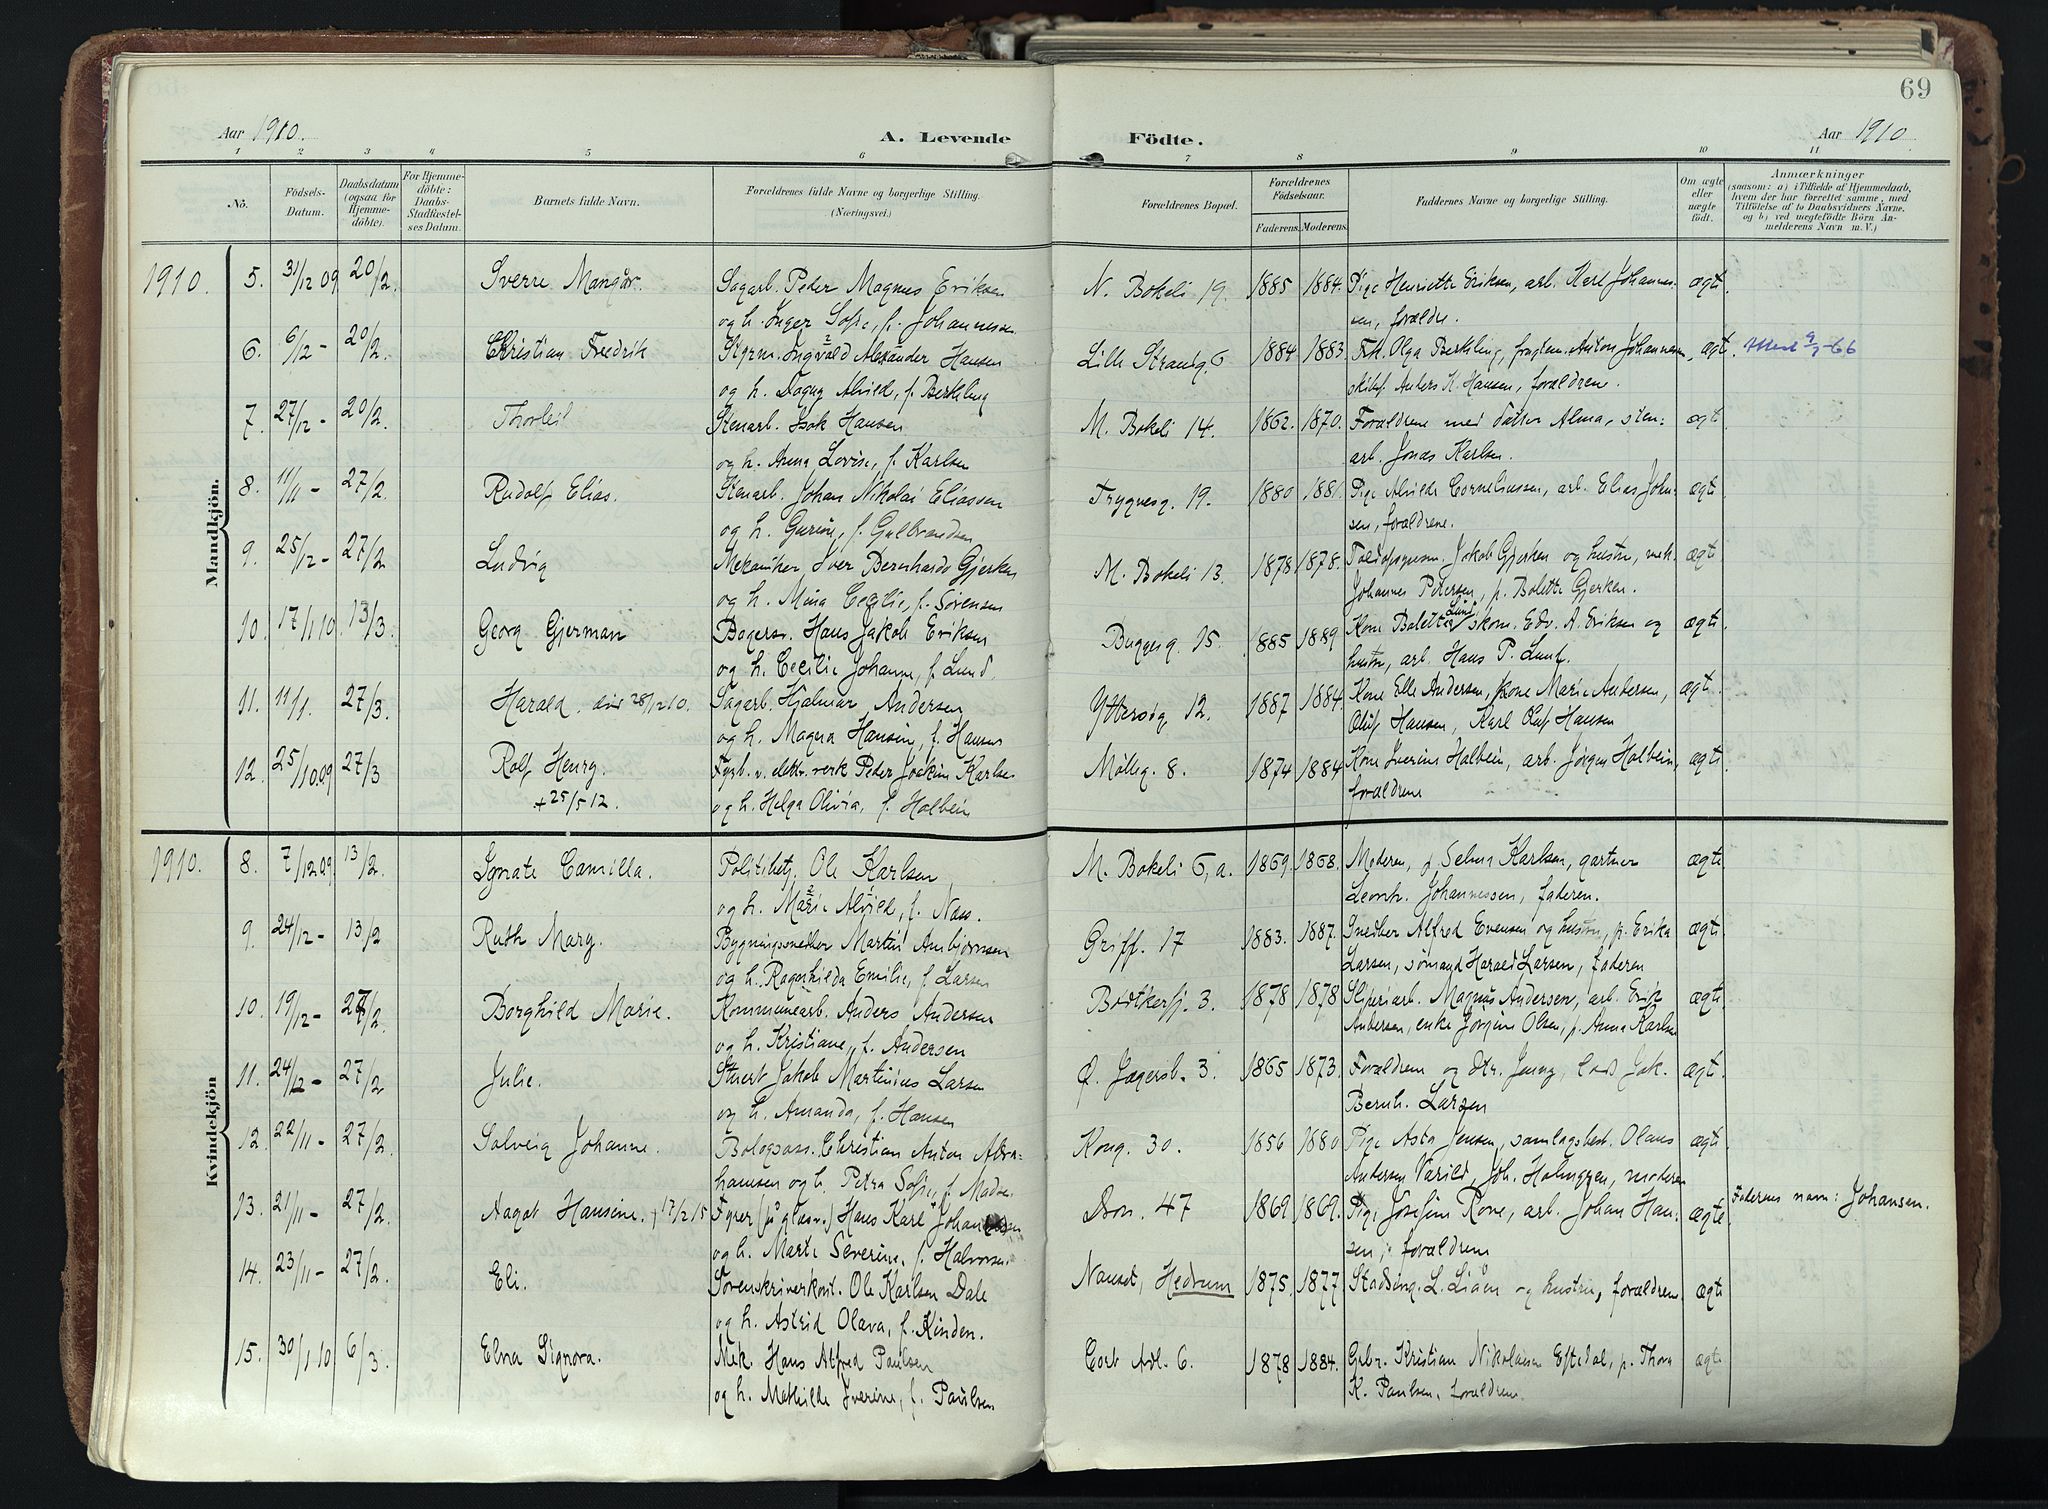 69
Aar 1910.
A. Levende
Födte.
Aar 1910.
1 2 3 4 5 6 7 8 9 10 11
No.
Födsels-Datum.
Daabsdatum (ogsaa for Hjemme-döbte).
For Hjemme-döbte: Daabs-Stadfæstel-ses Datum.
Barnets fulde Navn.
Forældrenes fulde Navne og borgerlige Stilling.
(Næringsvei.)
Forældrenes Bopæl.
Forældrenes Födselsaar.
Faderens. Moderens.
Faddernes Navne og borgerlige Stilling.
Om ægte eller uægte födt.
Anmærkninger
(saasom: a) i Tilfælde af Hjemmedaab, hvem der har forrettet samme, med Tilföielse af to Daabsvidners Navne. og b) ved uegtefödte Börn An-melderens Navn m. V.)
Mandkjön.
1910. 5. 31/12 09 20/2. Sverre Mangår. Sagarb. Peder Magnus Eriksen N. Bokeli 19. 1885 1884. Pige Henriette Eriksen, arb. Karl Johannes- ægte
og h. Inger Sofie, f. Johannessen sen, forældre.
6. 6/12 - 20/2. Christian Fredrik Styrm. Ingvald Alexander Hansen Lille Strandg. 6 1884 1883. Frk. Olga Berkling, Anton Johannesen, ægt.
og h. Dagny Alvild, f. Berkling Anders K. Hansen, forældrene.
7. 27/12 - 20/2. Thorleif Stenarb. Isak Hansen M. Bokeli 14. 1862. 1870. Forældrene med datter Alma, sten-
og h. Anna Lovise, f. Karlsen arb. Jonas Karlsen. ægt
8. 11/11 - 27/2. Rudolf Elias. Stenarb. Johan Nikolai Eliassen Trygvesg. 19. 1880 1881. Pige Alvilde Corneliussen, arb. Elias John- ægte
og h. Gurine, f. Gulbrandsen sen, forældrene.
9. 25/12 - 27/2 Ludvig Mekaniker Iver Bernhard Gjerken M. Bokeli 13. 1878 1878. Jakob Gjerken og hustru, mek. ægt
og h. Mina Cecilie, f. Sørensen Johannes Petersen, p. Bolette Gjerken.
10. 17/1 10. 13/3. Georg Gjerman Bagersv. Hans Jakob Eriksen Buggesg. 15. 1885 1889 Kone Bolette Lund, skom. Edv. A. Eriksen og ægte
og h. Cecilie Johanne, f. Lund. hustru, arb. Hans P. Lund.
11. 11/1. 27/3. Harald. død 28/12 10. Sagarb. Hjalmar Andersen Yttersøg. 12. 1887 1884 Kone Elle Andersen, kone Marie Andersen, ægt.
og h. Magna Hansine, f. Hansen Oluf Hansen, Karl Oluf Hansen
12. 25/10.09 27/3 Rolf Henry. Fyrb. v. elektr. verk Peder Joakim Karlsen Mølleg. 8. 1874 1884 Kone Iverine Holbein, arb. Jørgen Holbein, ægte
+ 25/5 12. og h. Helga Olivia, f. Holbein forældrene
Kvindekjön
1910. 8. 7/12 09 13/2. Camilla. Politibetj. Ole Karlsen M. Bokeli 6, a. 1869. 1868. Moderen, p. Selma Karlsen, gartner ægte
og h. Marie Alvild, f. Næss. Leonh. Johannessen, faderen.
9. 24/12 - 13/2 Ruth Mary. Bygningssnedker Martin Ambjørnsen Griff. 17 1883. 1887. Snedker Alfred Evensen og hustru, p. Erika ægte
og h. Ragnhilda Emilie, f. Larsen Larsen, sømand Harald Larsen, faderen
10. 19/12 - 27/2. Borghild Marie. Kommunearb. Anders Andersen Bødtkersg. 3. 1878 1878 Sliperiarb. Magnus Andersen, arb. Erik ægte
og h. Kristiane, f. Andersen Andersen, enke Jørgine Olsen, p. Anna Karlsen
11. 24/12 - 27/2 Julie. Stuert Jakob Martinius Larsen Ø. Jegersb. 3. 1865 1873. Forældrene og dtr. Jenny, lods Jak. ægte
og h. Amanda, f. Hansen Bernh. Larsen
12. 22/11 - 27/2. Solveig Johanne. Christian Anton Abra- Kong. 30. 1856 1880 Pige Asta Jensen, samlagsbest. Olaus ægte
hamsen og h. Petra Sofie, f. Madsen Andersen Varild, Joh. Holmgren, moderen
13. 21/11 - 27/2. Aagot Hansine. + 17/2 15 Fyrer (på glasv.) Hans Karl Johansen Dron. 47 1869 1869. Pige Josefine Rove, arb. Johan Han- ægte Faderens navn: Johansen.
og h. Marte Severine, f. Halvorsen sen, forældrene
14. 23/11 - 27/2. Eli. Sorenskriverkont. Ole Karlsen Dale Nanset, Hedrum 1875. 1877. Stadsing. L. Liåen og hustru, forældrene. ægte
og h. Astrid Olava, f. Kinden.
15. 30/1 10 6/3. Elna Signora. Mek. Hans Alfred Paulsen Cort Adl. 6. 1878 1884. Kristian Nikolaisen Eftedal, p. Thora ægte
og h. Mathilde Iverine, f. Paulsen K. Paulsen, forældrene.